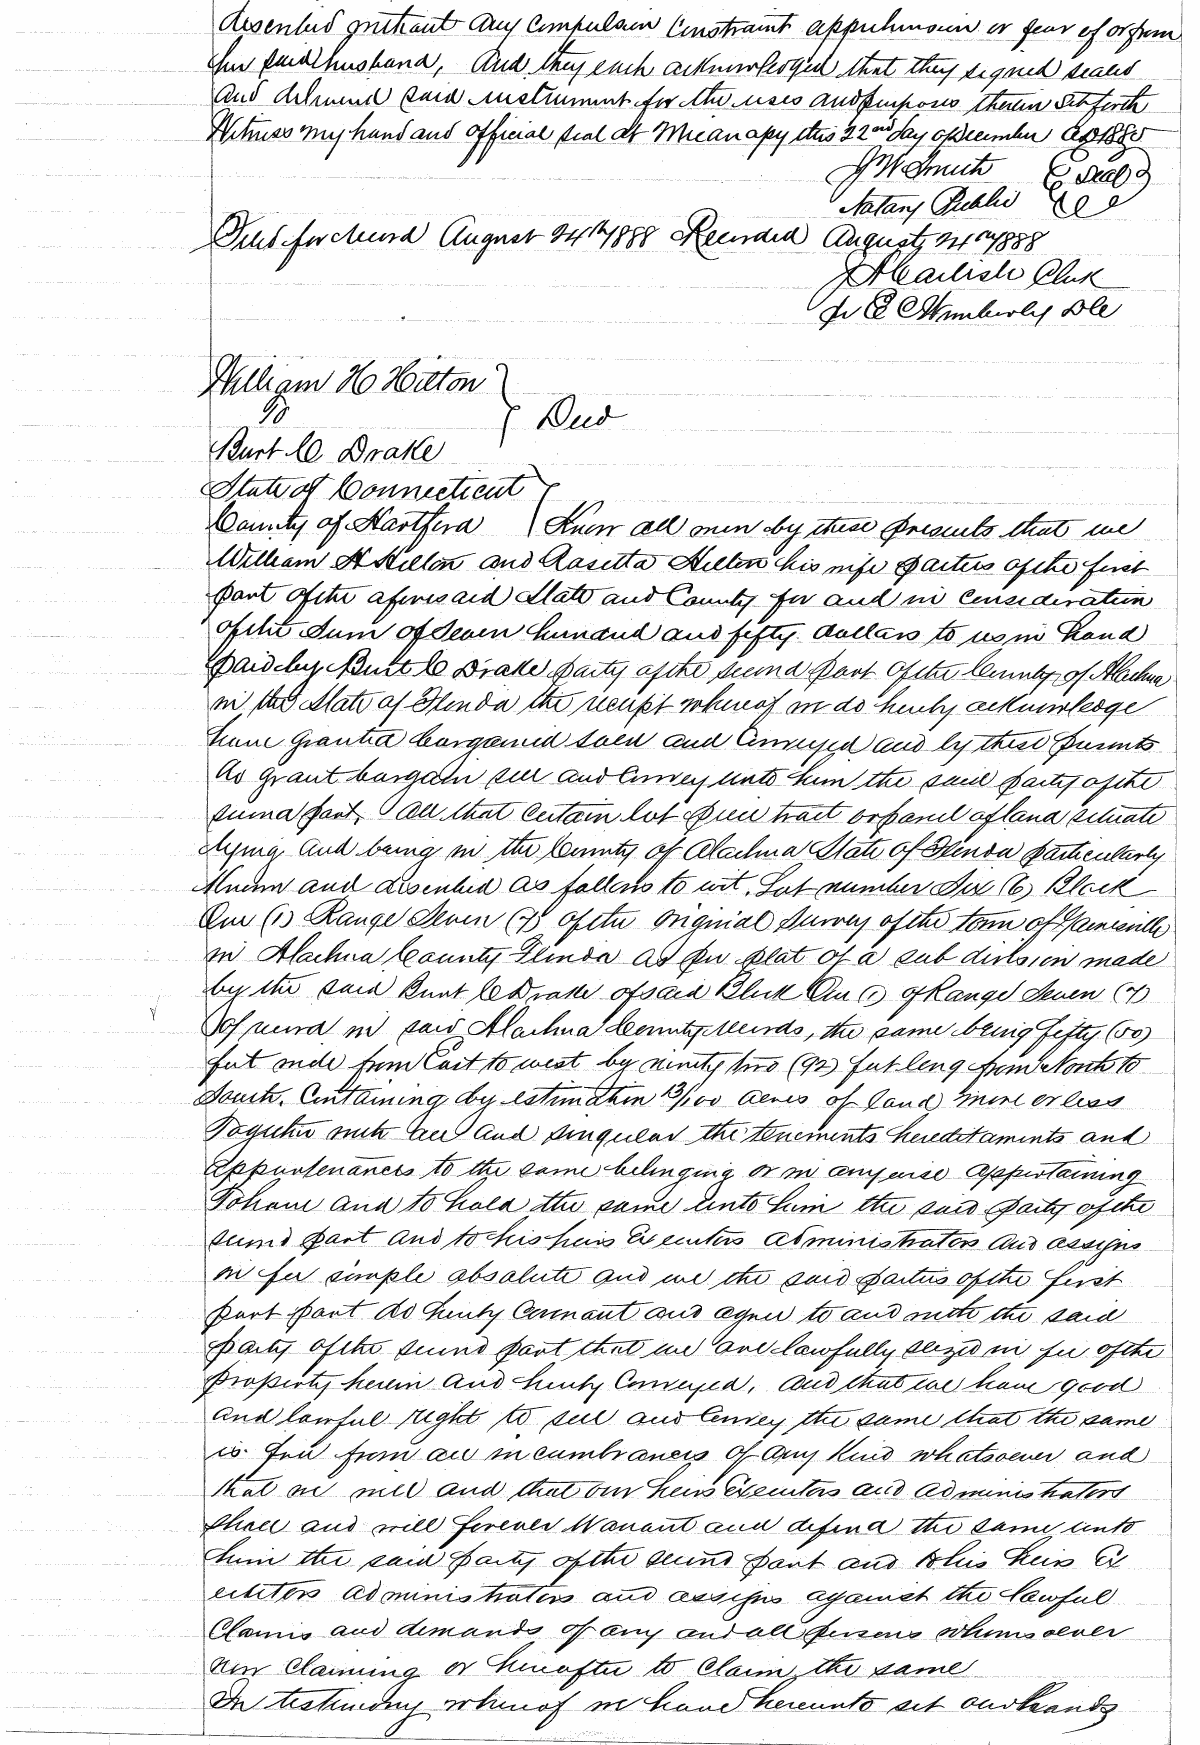 described without any compulsion constraint apprehension or fear of or from
her said husband, And they each acknowledged that they signed sealed
and delivered said instrument for the uses and purposes therein set forth
Witness my hand and official seal at Micanopy this 22nd day of December AD 1885
J W Smith (Seal)
Notary Public
Filed for record August 24th 1888 Recorded August 24th 1888
J A Carlisle Clerk
pr C C Wimberly DC
William H Hilton
To } Deed
Burt C Drake
State of Connecticut
County of Hartford Know all men by these presents that we
William H Hilton and Rosetta Hilton his wife parties of the first
part of the aforesaid State and County for and in consideration
of the Sum of Seven hundred and fifty dollars to us in hand
paid by Burt C Drake party of the second part of the County of Alachua
in the State of Florida the receipt whereof we do hereby acknowledge
have granted bargained sold and conveyed and by these presents
do grant bargain sell and convey unto him the said party of the
second part, All that certain lot piece tract or parcel of land situate
lying and being in the County of Alachua State of Florida particularly
known and described as follows to wit. Lot number Six (6) Block
One (1) Range Seven (7) of the original Survey of the town of Gainesville
in Alachua County Florida as per plat of a sub division made
by the said Burt C Drake of said Block One (1) of Range Seven (7)
of record in said Alachua County Records, the same being fifty (50)
feet wide from East to west by ninety two (92) feet long from North to
South. Containing by estimation 13/100 acres of land more or less
Together with all and singular the tenements hereditaments and
appurtenances to the same belonging or in anywise appertaining
To have and to hold the same unto him the said party of the
second part and to his heirs Executors administrators and assigns
in fee simple absolute and we the said parties of the first
part part do hereby Covenant and agree to and with the said
party of the second part that we are lawfully seized in fee of the
property herein and hereby Conveyed, and that we have good
and lawful right to sell and convey the same that the same
is free from all incumbrances of any kind whatsoever and
that we will and that our heirs Executors and administrators
shall and will forever Warrant and defend the same unto
him the said party of the second part and to his heirs Ex
ecutors administrators and assigns against the lawful
Claims and demands of any and all persons whomsoever
now claiming or hereafter to claim the same
In testimony whereof we have hereunto set our hands